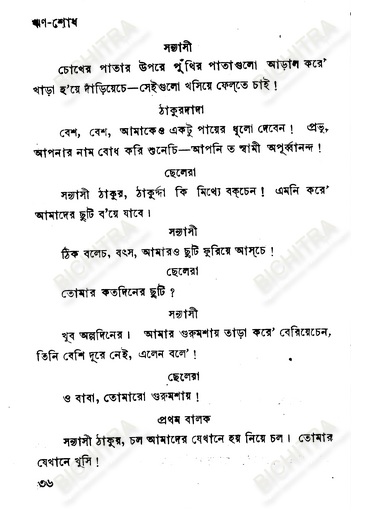 ঋণ-শোধ
সন্ন্যাসী
চোখের পাতার উপরে পুঁথির পাতাগুলো আড়াল করে’
খাড়া হ’য়ে দাঁড়িয়েচে—সেইগুলো খসিয়ে ফেল্‌তে চাই !
ঠাকুরদাদা
বেশ, বেশ, আমাকেও একটু পায়ের ধূলো দেবেন ! প্রভু,
আপনার নাম বোধ করি শুনেচি—আপনি ত স্বামী অপূর্ব্বানন্দ !
ছেলেরা
সন্ন্যাসী ঠাকুর, ঠাকুর্দ্দা কি মিথ্যে বক্‌চেন ! এমনি করে’
আমাদের ছুটি ব’য়ে যাবে ।
সন্ন্যাসী
ঠিক বলেচ, বৎস, আমারও ছুটি ফুরিয়ে আস্‌চে !
ছেলেরা
তোমার কতদিনের ছুটি ?
সন্ন্যাসী
খুব অল্পদিনের । আমার গুরুমশায় তাড়া করে’ বেরিয়েচেন,
তিনি বেশি দূরে নেই, এলেন বলে’ !
ছেলেরা
ও বাবা, তোমারো গুরুমশায় !
প্রথম বালক
সন্ন্যাসী ঠাকুর, চল আমাদের যেখানে হয় নিয়ে চল । তোমার
যেখানে খুসি !
৩৬
BICHITRA